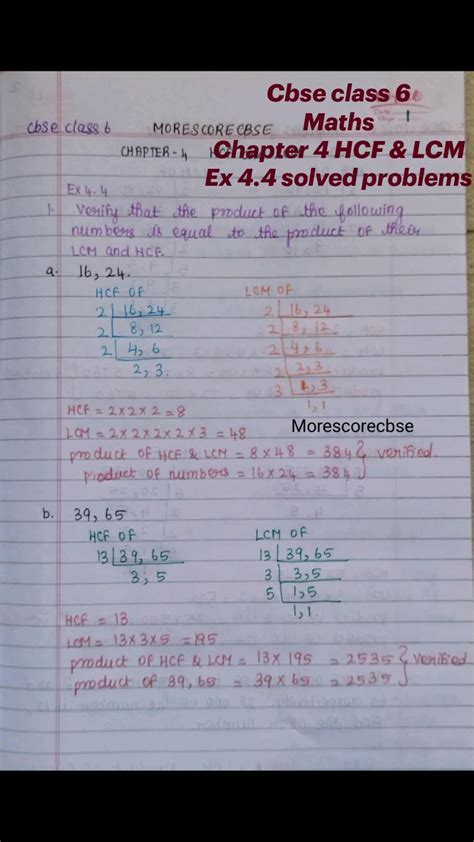 Cbse class 6
Maths
Chapter 4 HCF & LCM
Ex 4.4 solved problems
cbse class 6 MORESCORECBSE
CHAPTER-4
Ex 4.4
1. Verify that the product of the following
numbers is equal to the product of their
LCM and HCF.
a. 16, 24.
HCF OF LCM OF
2 | 16, 24 2 | 16, 24
2 | 8, 12 2 | 8, 12
2 | 4, 6 2 | 4, 6
2, 3. 2 | 2, 3
3 | 1, 3
1, 1
HCF = 2 x 2 x 2 = 8
Morescorecbse
LCM = 2 x 2 x 2 x 2 x 3 = 48
product of HCF & LCM = 8 x 48 = 384 } verified.
product of numbers = 16 x 24 = 384
b. 39, 65
HCF OF LCM OF
13 | 39, 65 13 | 39, 65
3, 5 3 | 3, 5
5 | 1, 5
1, 1.
HCF = 13
LCM = 13 x 3 x 5 = 195
product of HCF & LCM = 13 x 195 = 2535 } verified
product of 39, 65 = 39 x 65 = 2535